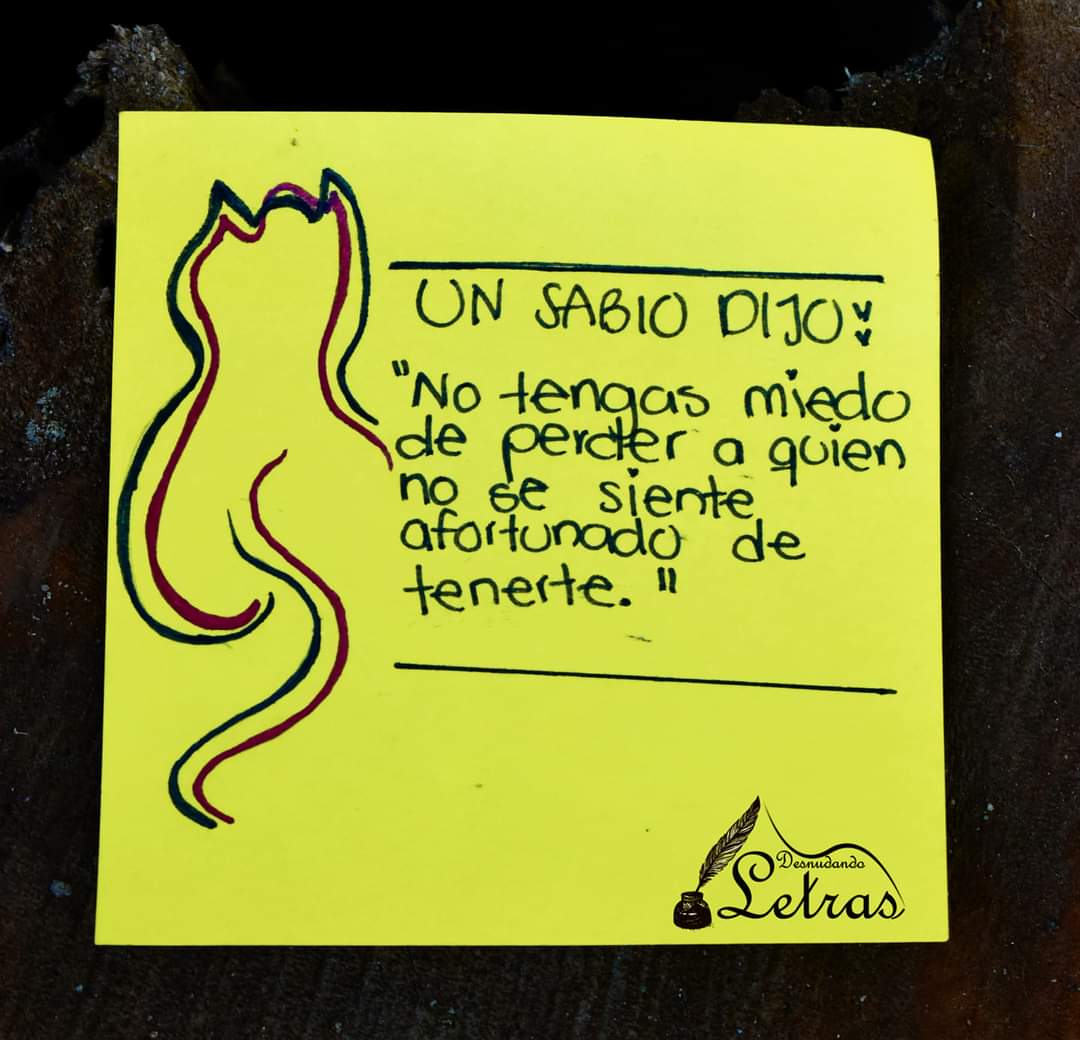 UN SABIO DIJO:
"No tengas miedo
de perder a quien
no se siente
afortunado de
tenerte. "
Desnudando
Letras